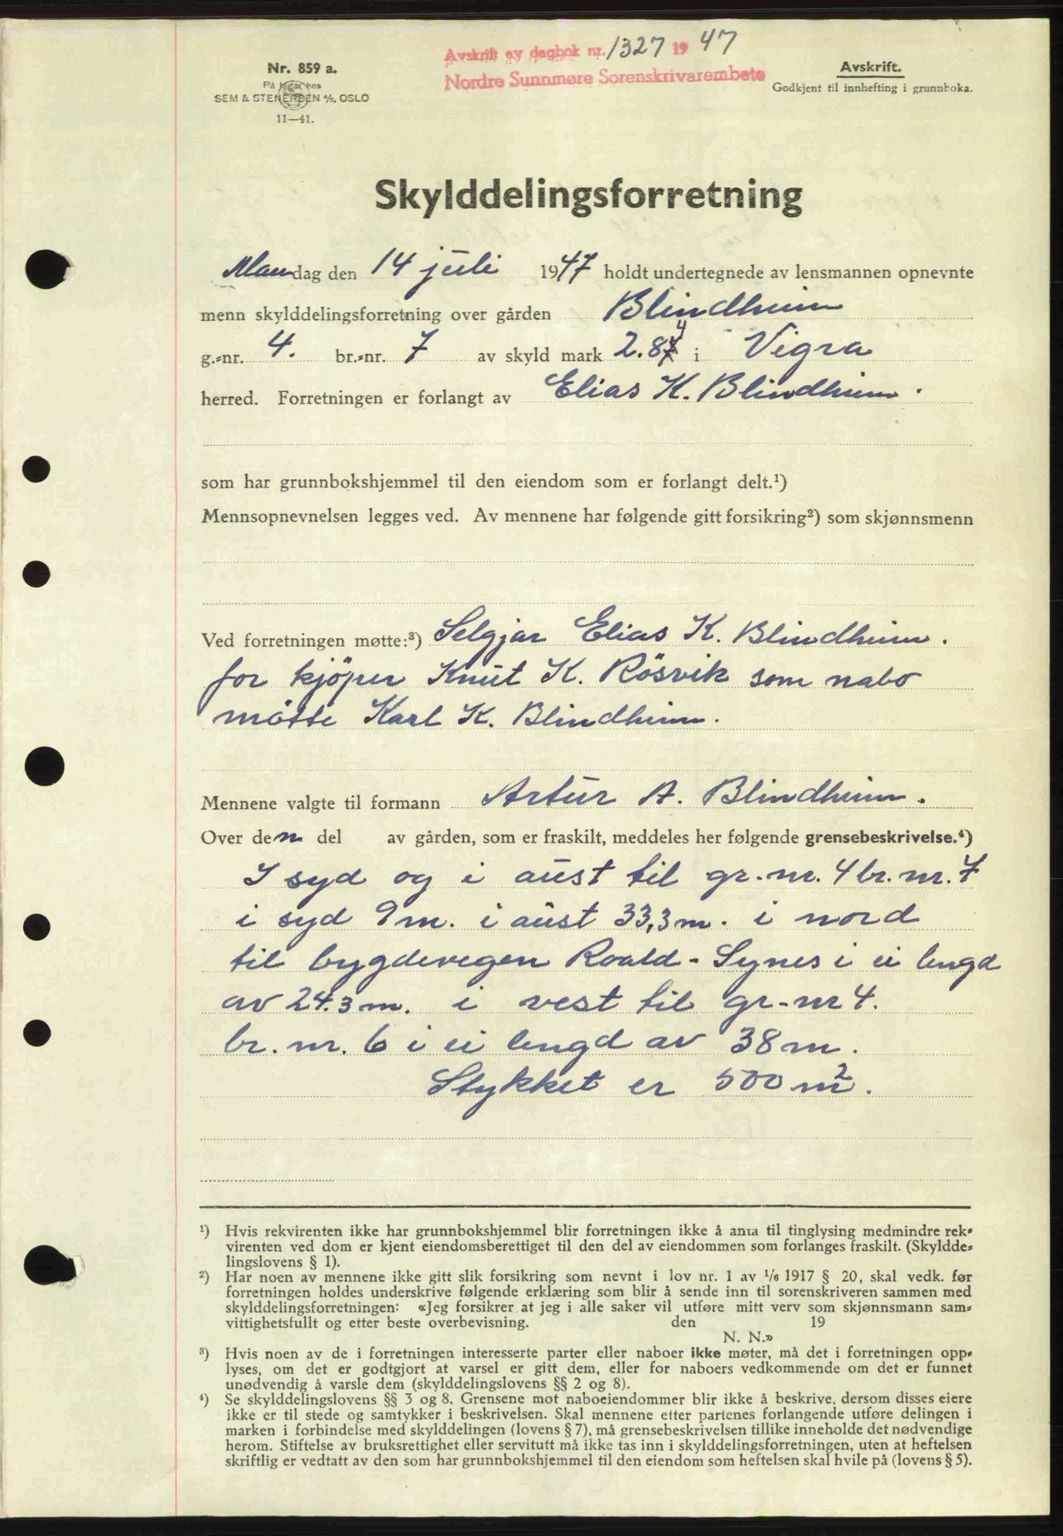 Avskrift av dagbok nr. 1327 19 47
Nordre Sunnmøre Sorenskrivarembete
Nr. 859 a.
På lager hos
SEM & STENERSEN A/S, OSLO
11—41.
Avskrift.
Godkjent til innhefting i grunnboka.
Skylddelingsforretning
Mandag den 14 juli 1947 holdt undertegnede av lensmannen opnevnte
menn skylddelingsforretning over gården Blindheim
g.-nr. 4. br.-nr. 7 av skyld mark 2.84 i Vigra
herred. Forretningen er forlangt av Elias K. Blindheim.
som har grunnbokshjemmel til den eiendom som er forlangt delt.¹)
Mennsopnevnelsen legges ved. Av mennene har følgende gitt forsikring²) som skjønnsmenn
Ved forretningen møtte:³) Selgjar Elias K. Blindheim.
for kjöper Knut K. Rösvik som nabo
mötte Karl K. Blindheim.
Mennene valgte til formann Artur A. Blindheim.
Over den del av gården, som er fraskilt, meddeles her følgende grensebeskrivelse.⁴)
I syd og i aust til gr.nr. 4 br. nr. 7
i syd 9 m. i aust 33,3 m. i nord
til bygdevegen Roald - Synes i ei lengd
av 24.3 m. i vest til gr-nr 4.
br. nr. 6 i ei lengd av 38 m.
Stykket er 500 m².
¹) Hvis rekvirenten ikke har grunnbokshjemmel blir forretningen ikke å anta til tinglysing medmindre rek-
virenten ved dom er kjent eiendomsberettiget til den del av eiendommen som forlanges fraskilt. (Skyldde-
lingslovens § 1).
²) Har noen av mennene ikke gitt slik forsikring som nevnt i lov nr. 1 av 1/6 1917 § 20, skal vedk. før
forretningen holdes underskrive følgende erklæring som blir å sende inn til sorenskriveren sammen med
skylddelingsforretningen: «Jeg forsikrer at jeg i alle saker vil utføre mitt verv som skjønnsmann sam-
vittighetsfullt og etter beste overbevisning. den 19
N. N.»
³) Hvis noen av de i forretningen interesserte parter eller naboer ikke møter, må det i forretningen opp-
lyses, om det er godtgjort at varsel er gitt dem, eller for naboers vedkommende om det er funnet
unødvendig å varsle dem (skylddelingslovens §§ 2 og 8).
⁴) Se skylddelingslovens §§ 3 og 8. Grensene mot naboeiendommer blir ikke å beskrive, dersom disses eiere
ikke er til stede og samtykker i beskrivelsen. Skal mennene etter partenes forlangende utføre delingen i
marken i forbindelse med skylddelingen (lovens § 7), må grensebeskrivelsen tillike inneholde det nødvendige
herom. Stiftelse av bruksrettighet eller servitutt må ikke tas inn i skylddelingsforretningen, uten at heftelsen
skriftlig er vedtatt av den som har grunnbokshjemmel til den eiendom som heftelsen skal hvile på (lovens § 5).